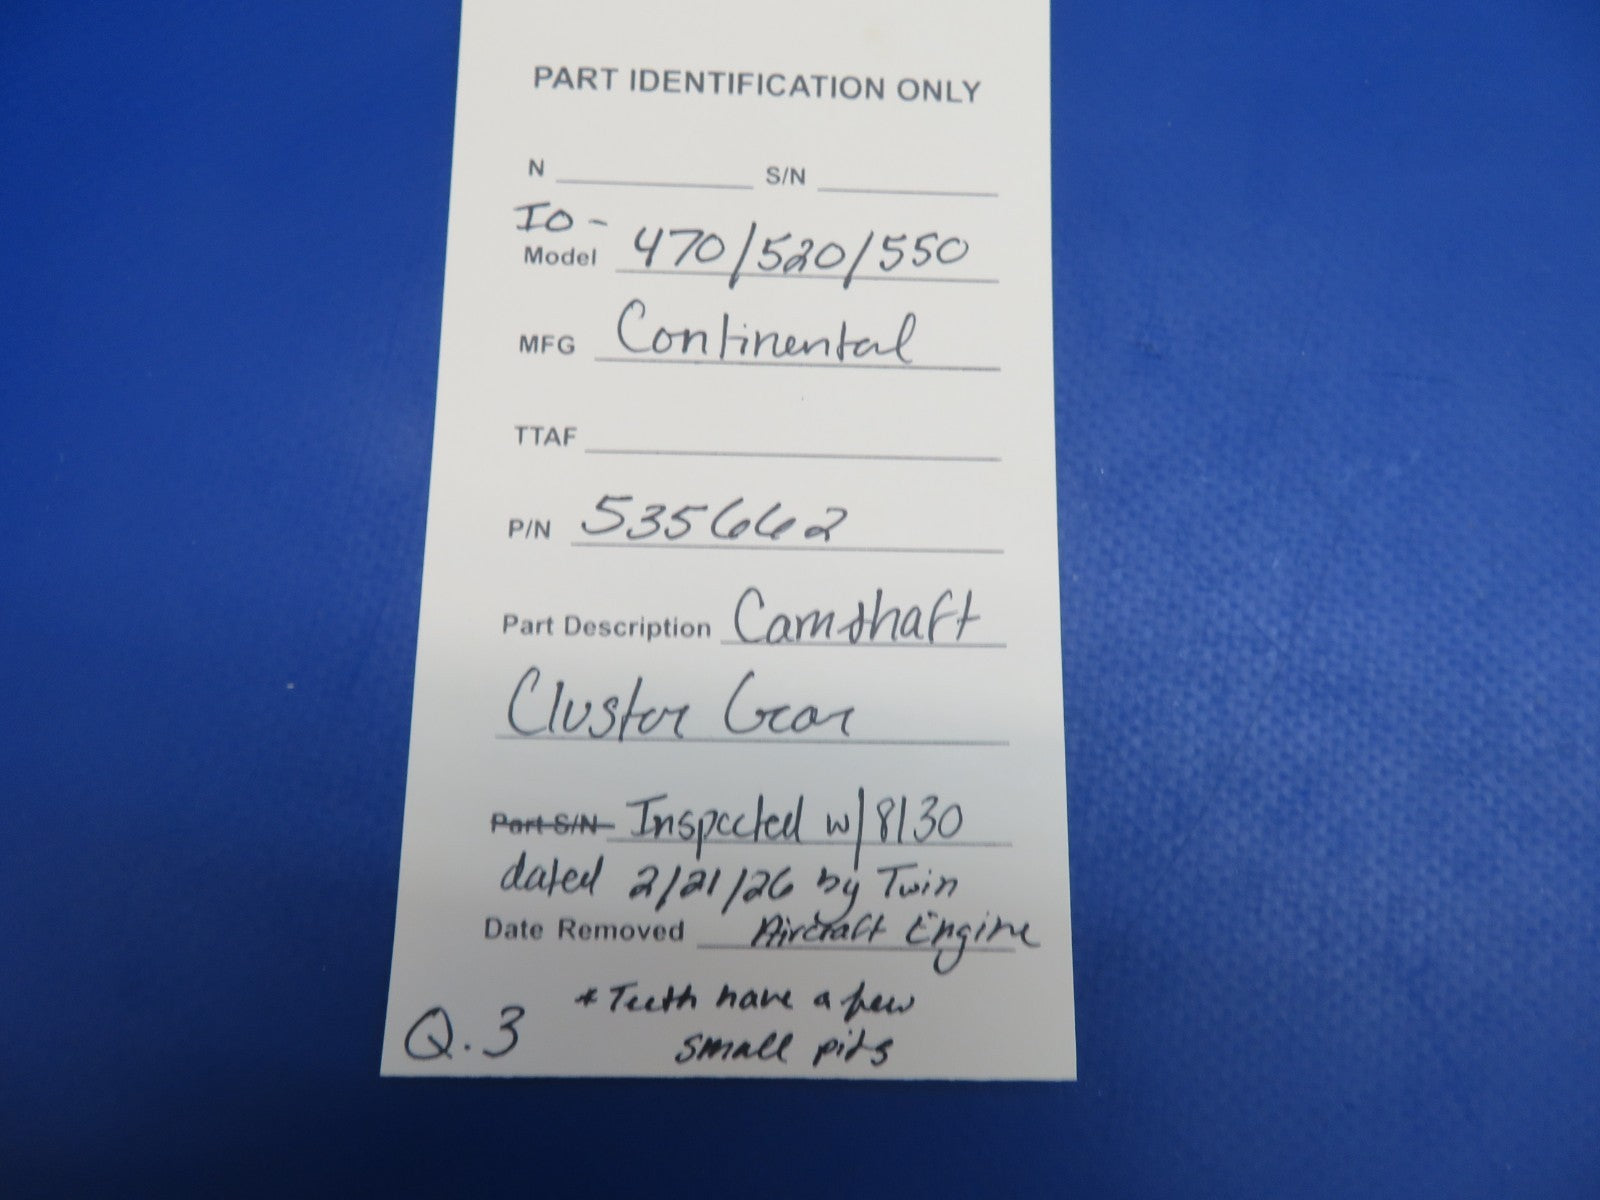 PART IDENTIFICATION ONLY
N S/N
IO -
Model 470/520/550
MFG Continental
TTAF
P/N 535662
Part Description Camshaft
Cluster Gear
Part S/N Inspected w/ 8130
dated 2/21/26 by Twin
Date Removed Aircraft Engine
* Teeth have a few
Q.3 small pits